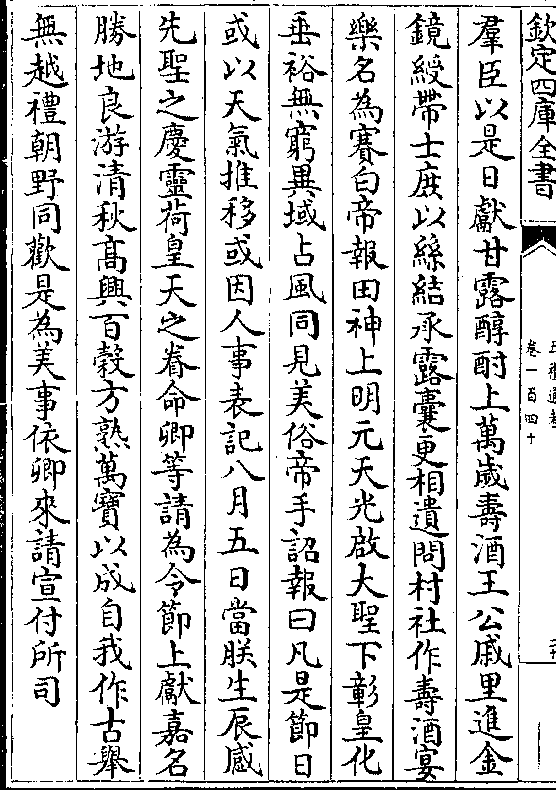 欽定四庫全書
卷一百四十
羣臣以是日獻甘露醇酎上萬歲壽酒王公戚里進金
鏡綬帶士庶以絲結承露囊更相遺問村社作壽酒宴
樂名為賽白帝報田神上明元天光啟大聖下彰皇化
垂裕無窮異域占風同見美俗帝手詔報曰凡是節日
或以天氣推移或因人事表記八月五日當朕生辰感
先聖之慶靈荷皇天之眷命卿等請為令節上獻嘉名
勝地良游清秋髙興百穀方熟萬寶以成自我作古舉
無越禮朝野同歡是為美事依卿來請宣付所司